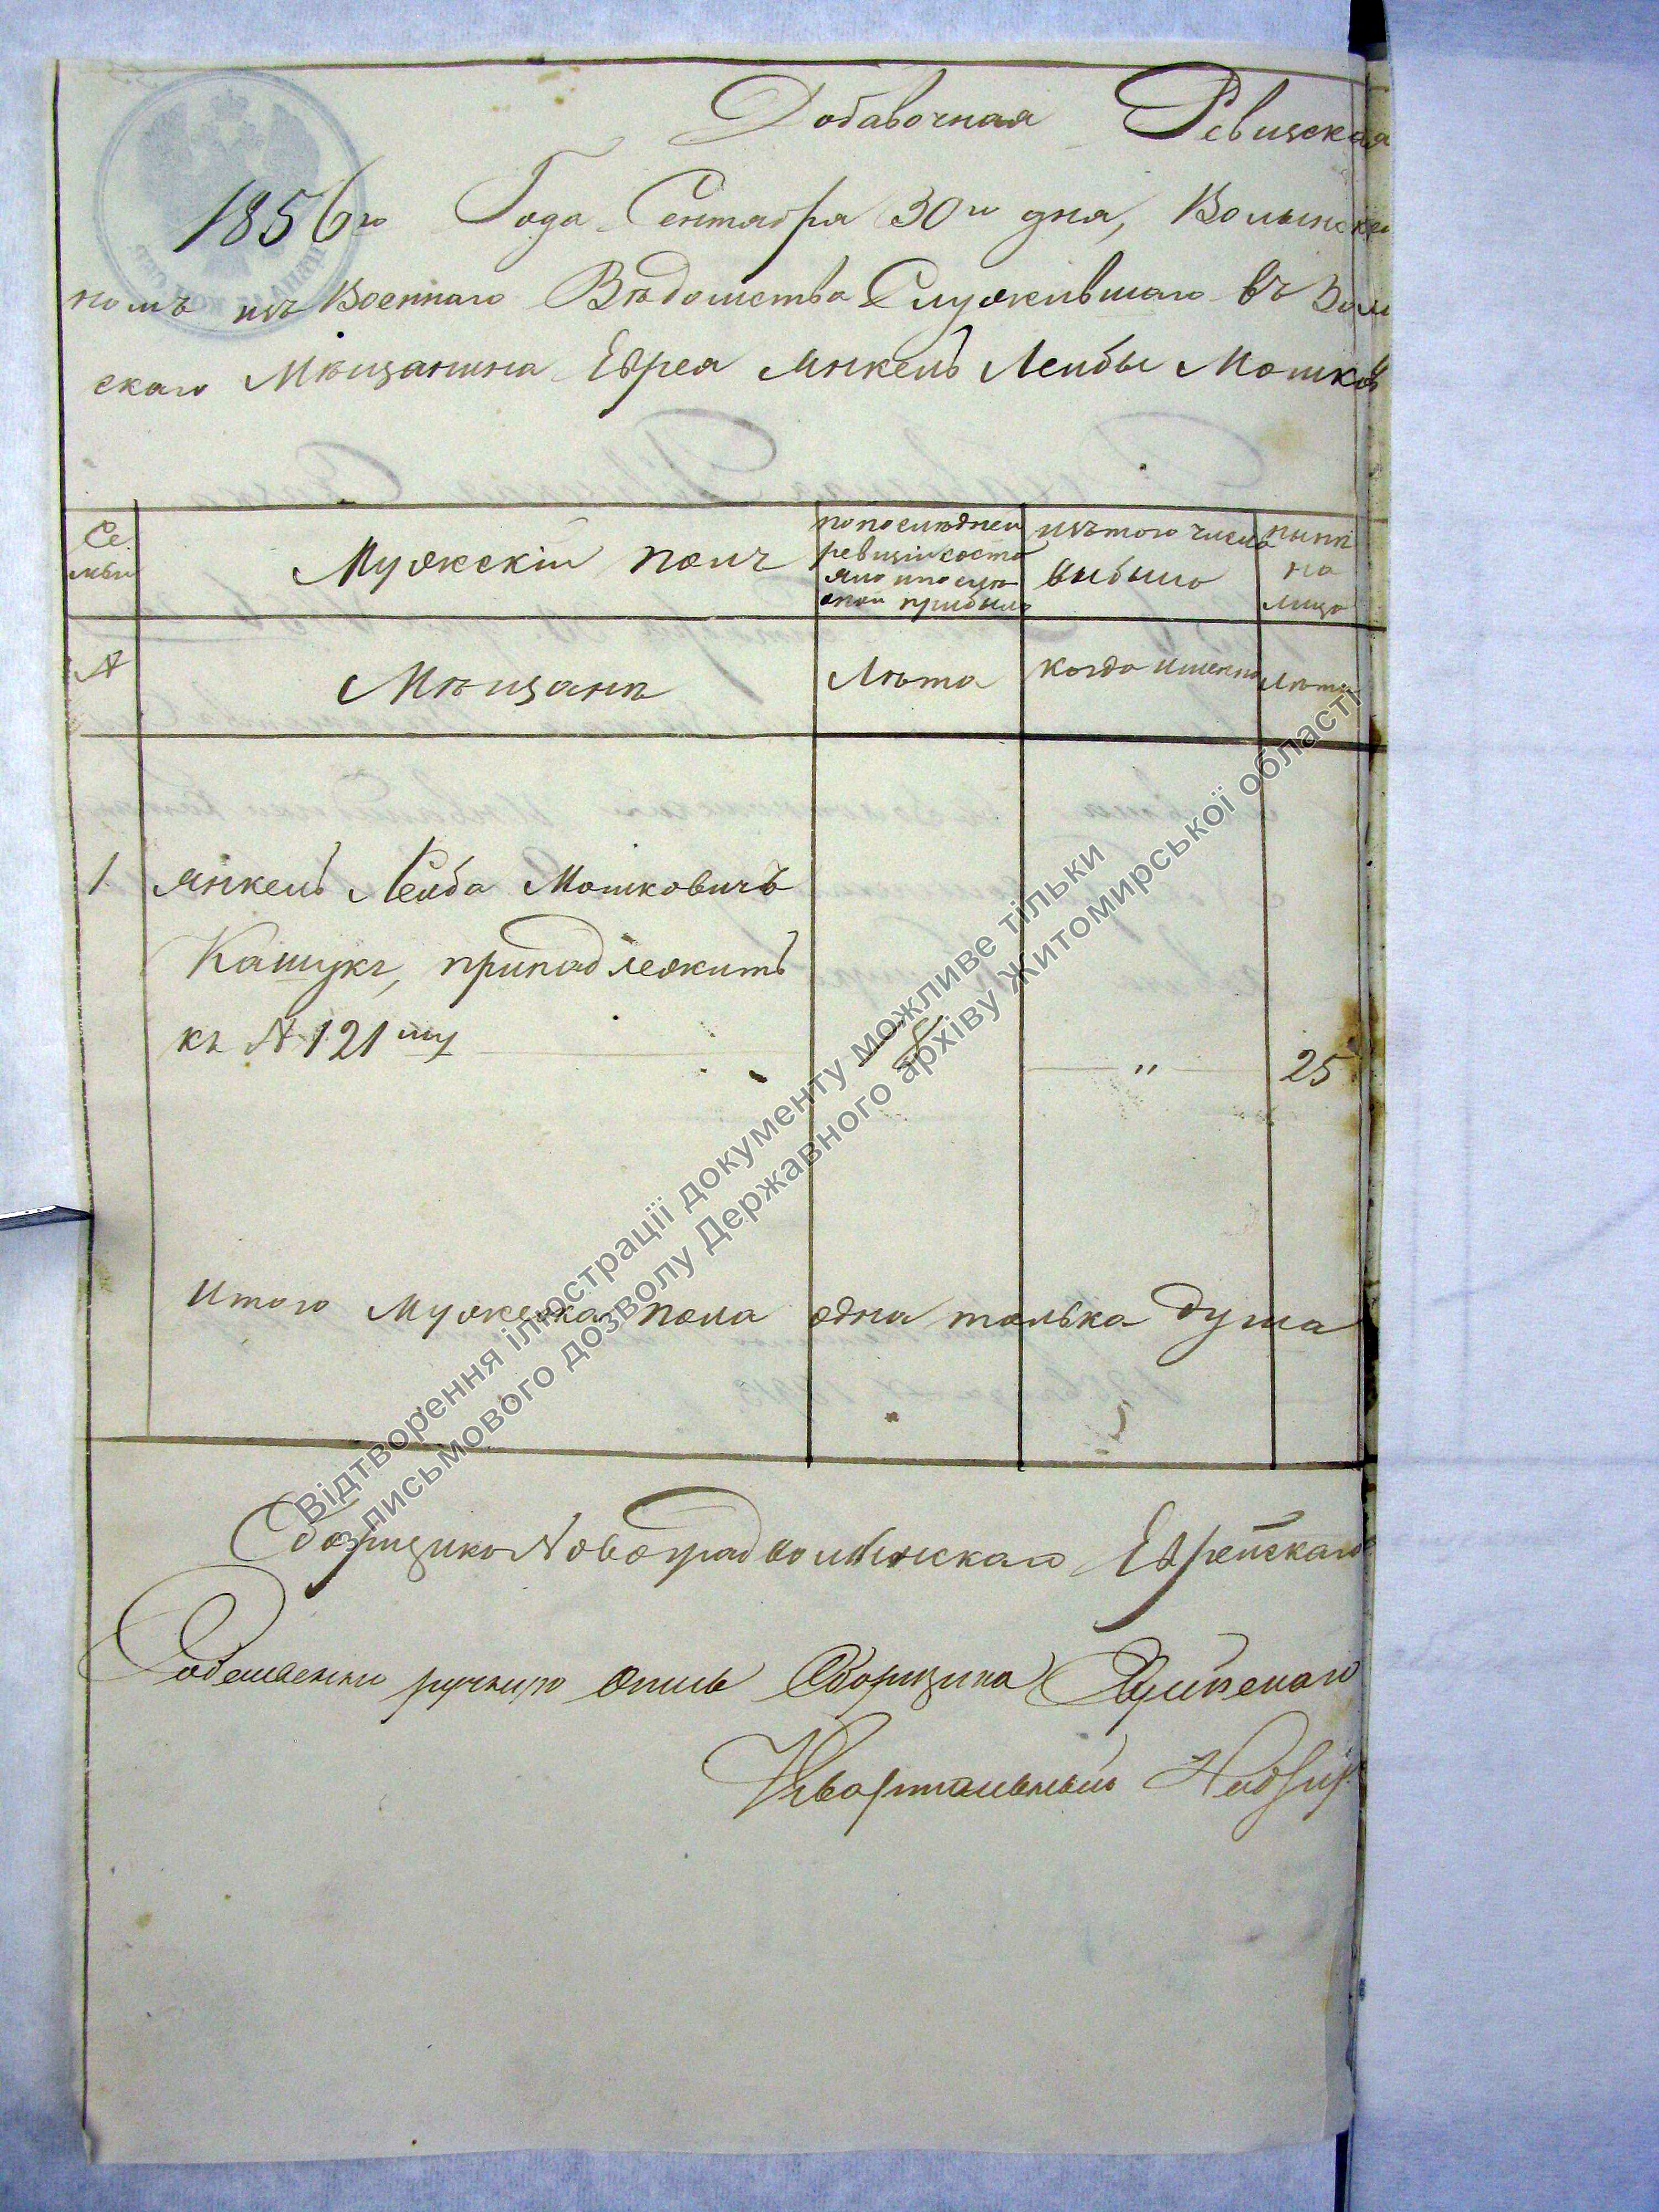 Добавочная Ревизская
1856го Года Сентября 30го дня, Волынско
номъ изъ Военнаго Вѣдомства Служившаго въ
скаго Мѣщанина Еврея Янкель Лейбы Мошков
Се
мьи
Мужскій полъ
по последней
ревизіи состо
яло и после
оной прибыло
изъ того числа
выбыло
нынѣ
на
лицо
№
Мѣщанѣ
Лѣта
когда именно
Лѣта
1. Янкель Лейба Мошковичъ
Кашукъ, принадлежитъ
къ № 121му
" 25
Итого Мужескаго пола одна только душа
Сборщикъ Новоградволынскаго Еврейскаго
ручную Сборщика
Квартальный Надзир
Відтворення ілюстрації документу можливе тільки
з письмового дозволу Державного архіву Житомирської області